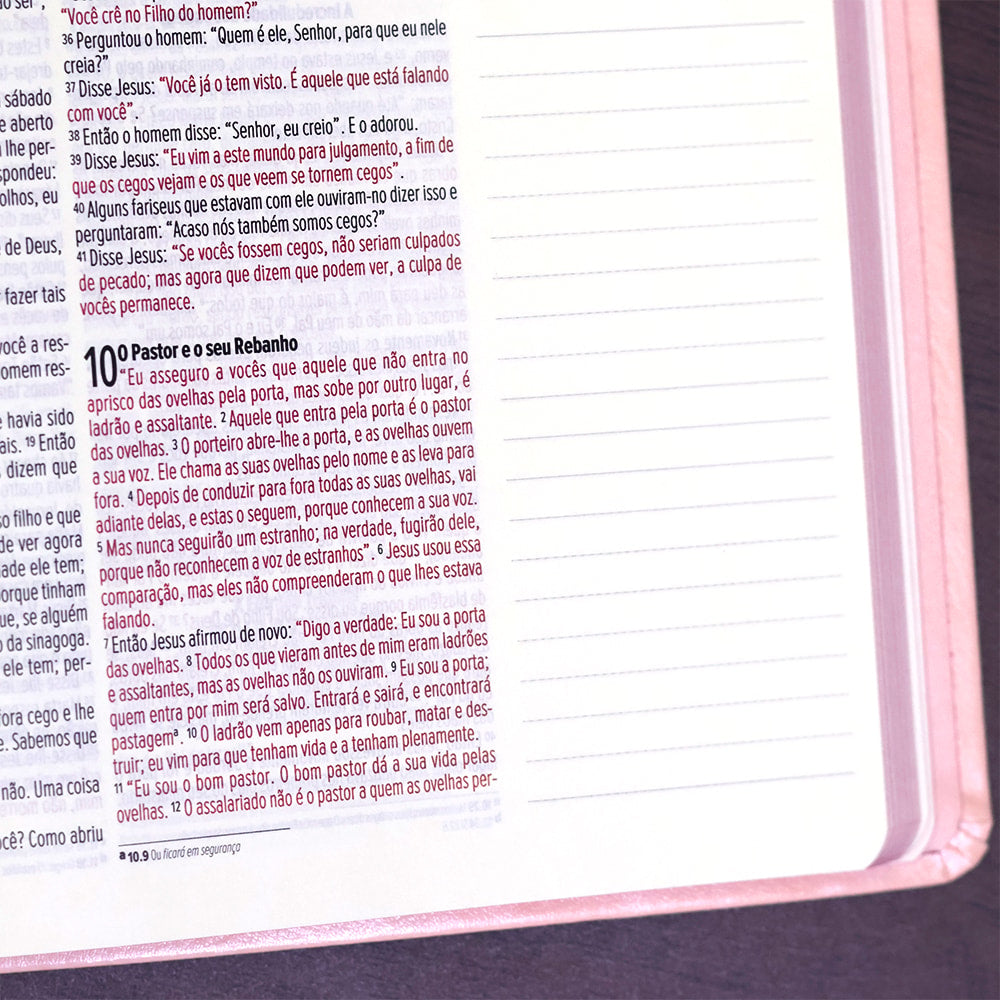 sábado
e aberto
lhe per-
spondeu:
olhos, eu
de Deus,
fazer tais
você a res-
omem res-
havia sido
ais. 19 Então
dizem que
o filho e que
de ver agora
ade ele tem;
orque tinham
ue, se alguém
da sinagoga.
ele tem; per-
fora cego e lhe
e. Sabemos que
não. Uma coisa
ocê? Como abriu
“Você crê no Filho do homem?”
36 Perguntou o homem: “Quem é ele, Senhor, para que eu nele
creia?”
37 Disse Jesus: “Você já o tem visto. É aquele que está falando
com você”.
38 Então o homem disse: “Senhor, eu creio”. E o adorou.
39 Disse Jesus: “Eu vim a este mundo para julgamento, a fim de
que os cegos vejam e os que veem se tornem cegos”.
40 Alguns fariseus que estavam com ele ouviram-no dizer isso e
perguntaram: “Acaso nós também somos cegos?”
41 Disse Jesus: “Se vocês fossem cegos, não seriam culpados
de pecado; mas agora que dizem que podem ver, a culpa de
vocês permanece.
10 O Pastor e o seu Rebanho
“Eu asseguro a vocês que aquele que não entra no
aprisco das ovelhas pela porta, mas sobe por outro lugar, é
ladrão e assaltante. 2 Aquele que entra pela porta é o pastor
das ovelhas. 3 O porteiro abre-lhe a porta, e as ovelhas ouvem
a sua voz. Ele chama as suas ovelhas pelo nome e as leva para
fora. 4 Depois de conduzir para fora todas as suas ovelhas, vai
adiante delas, e estas o seguem, porque conhecem a sua voz.
5 Mas nunca seguirão um estranho; na verdade, fugirão dele,
porque não reconhecem a voz de estranhos”. 6 Jesus usou essa
comparação, mas eles não compreenderam o que lhes estava
falando.
7 Então Jesus afirmou de novo: “Digo a verdade: Eu sou a porta
das ovelhas. 8 Todos os que vieram antes de mim eram ladrões
e assaltantes, mas as ovelhas não os ouviram. 9 Eu sou a porta;
quem entra por mim será salvo. Entrará e sairá, e encontrará
pastagemª. 10 O ladrão vem apenas para roubar, matar e des-
truir; eu vim para que tenham vida e a tenham plenamente.
11 “Eu sou o bom pastor. O bom pastor dá a sua vida pelas
ovelhas. 12 O assalariado não é o pastor a quem as ovelhas per-
a 10.9 Ou ficará em segurança